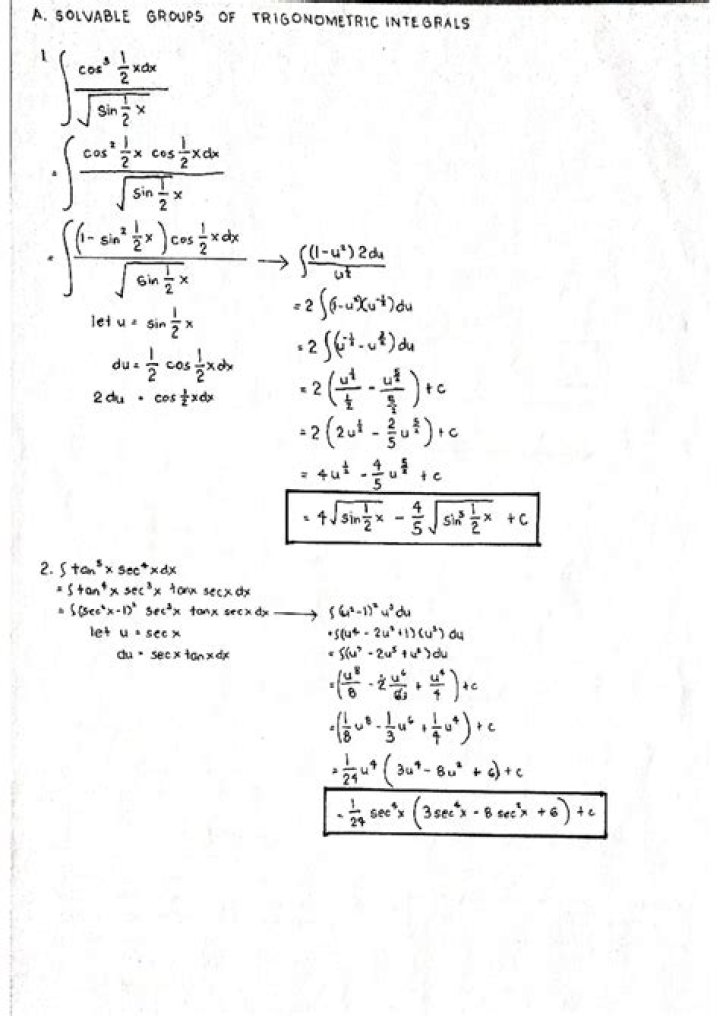 A. SOLVABLE GROUPS OF TRIGONOMETRIC INTEGRALS
1 ∫ cos³ 1/2 x dx / √(sin 1/2 x)
= ∫ cos² 1/2 x cos 1/2 x dx / √(sin 1/2 x)
= ∫ (1 - sin² 1/2 x) cos 1/2 x dx / √(sin 1/2 x) → ∫ ((1-u²) 2du / u^(1/2)
let u = sin 1/2 x
du = 1/2 cos 1/2 x dx
2 du = cos 1/2 x dx
= 2 ∫ (1-u²)(u^(-1/2)) du
= 2 ∫ (u^(-1/2) - u^(3/2)) du
= 2 (u^(1/2) / (1/2) - u^(5/2) / (5/2)) + c
= 2 (2u^(1/2) - 2/5 u^(5/2)) + c
= 4u^(1/2) - 4/5 u^(5/2) + c
= 4√(sin 1/2 x) - 4/5 √(sin⁵ 1/2 x) + C
2. ∫ tan⁵ x sec⁴ x dx
= ∫ tan⁴ x sec³ x tanx secx dx
= ∫ (sec²x-1)² sec³x tanx secx dx → ∫ (u²-1)² u³ du
let u = sec x
du = sec x tan x dx
= ∫(u⁴ - 2u² + 1)(u³) du
= ∫(u⁷ - 2u⁵ + u³) du
= (u⁸/8 - 2u⁶/6 + u⁴/4) + c
= (1/8 u⁸ - 1/3 u⁶ + 1/4 u⁴) + c
= 1/24 u⁴ (3u⁴ - 8u² + 6) + c
= 1/24 sec⁴x (3 sec⁴x - 8 sec²x + 6) + c